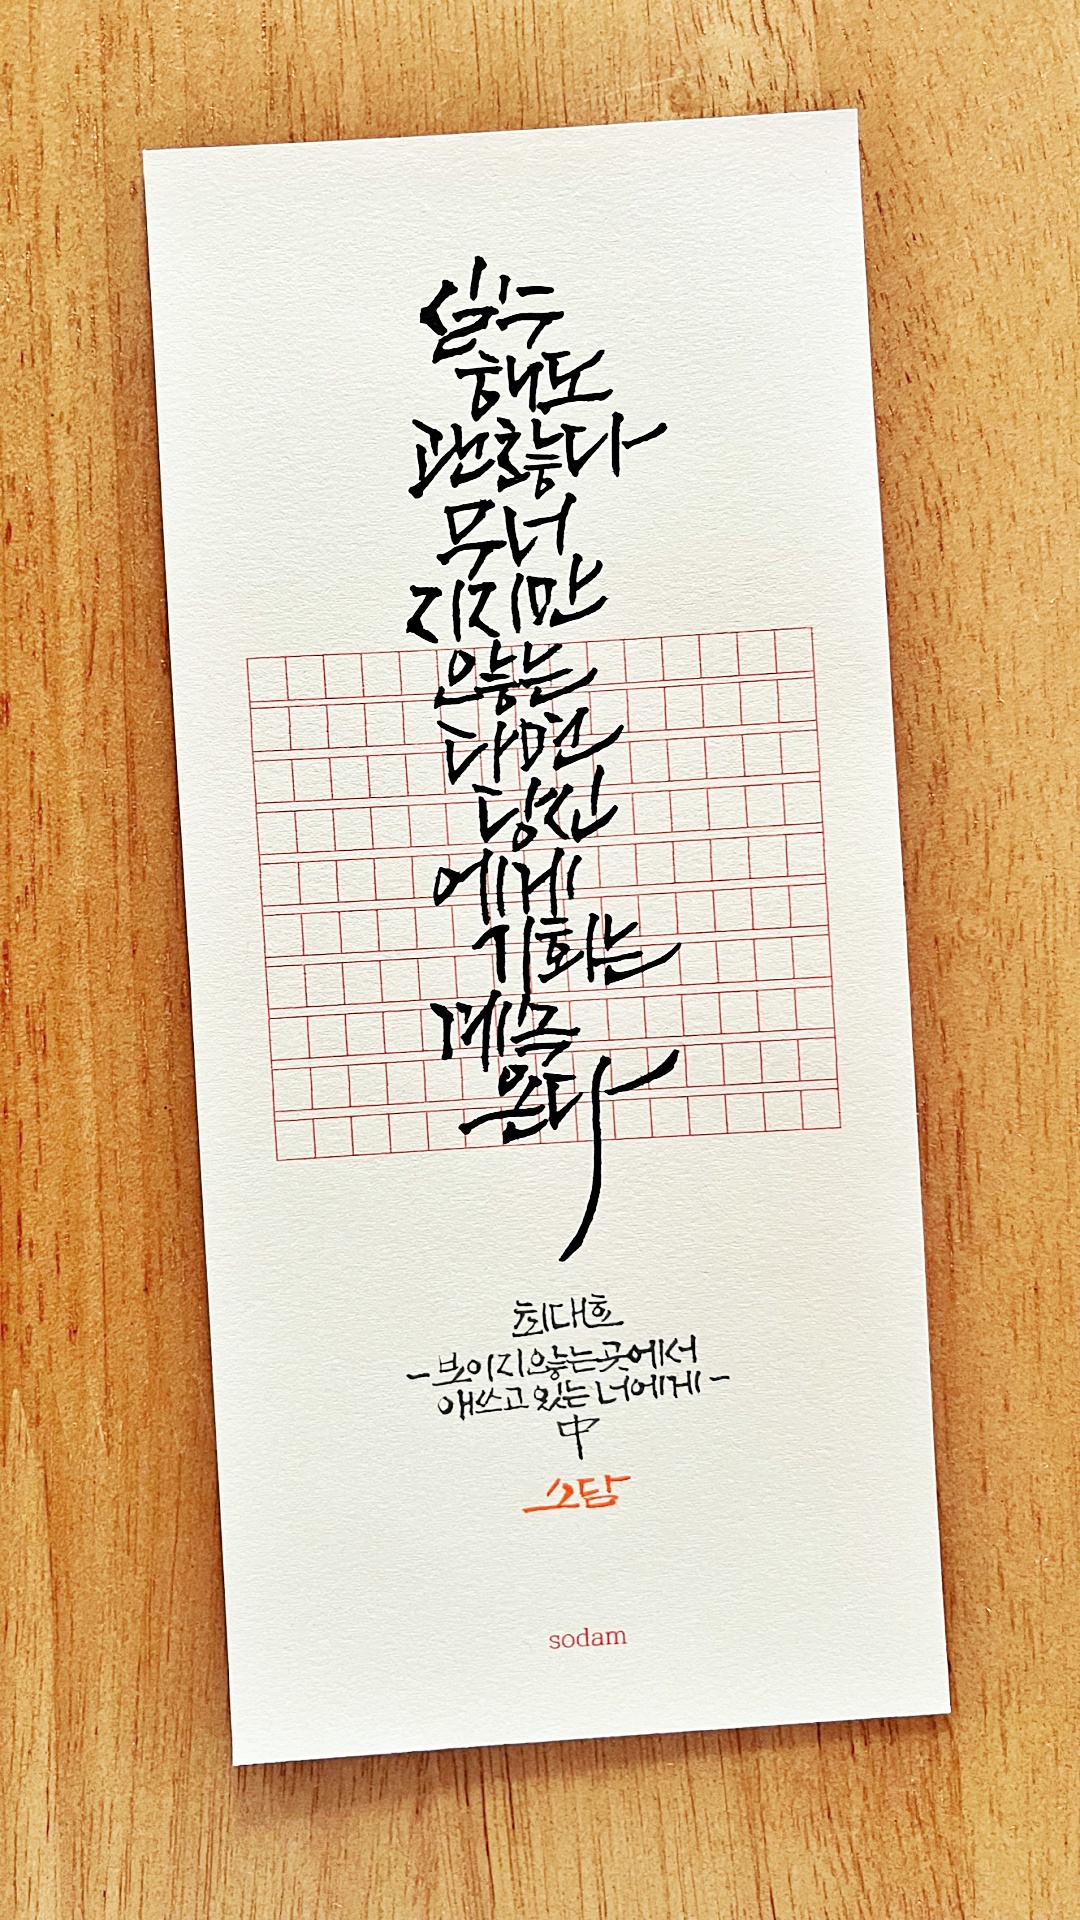 실수
해도
괜찮다
무너
지지만
않는
다면
당신
에게
기회는
계속
온다
최대호
-보이지 않는 곳에서
애쓰고 있는 너에게-
中
소담
sodam